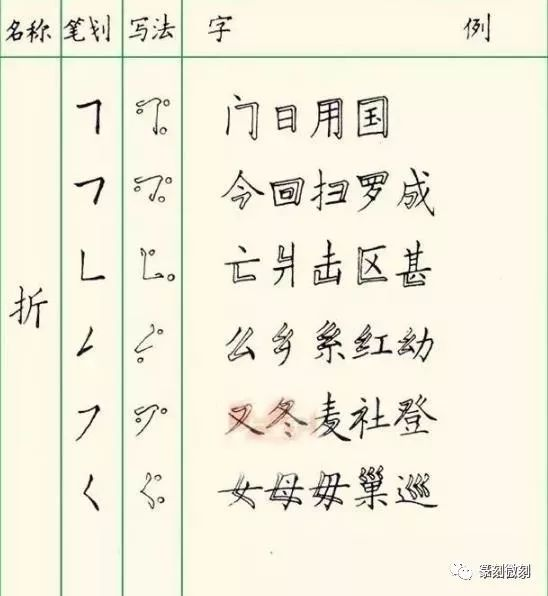 名称 笔划 写法 字 例
门日用国
今回扫罗成
亡爿击区甚
折
么乡系红幼
又冬麦社登
女母毋巢巡
篆刻微刻